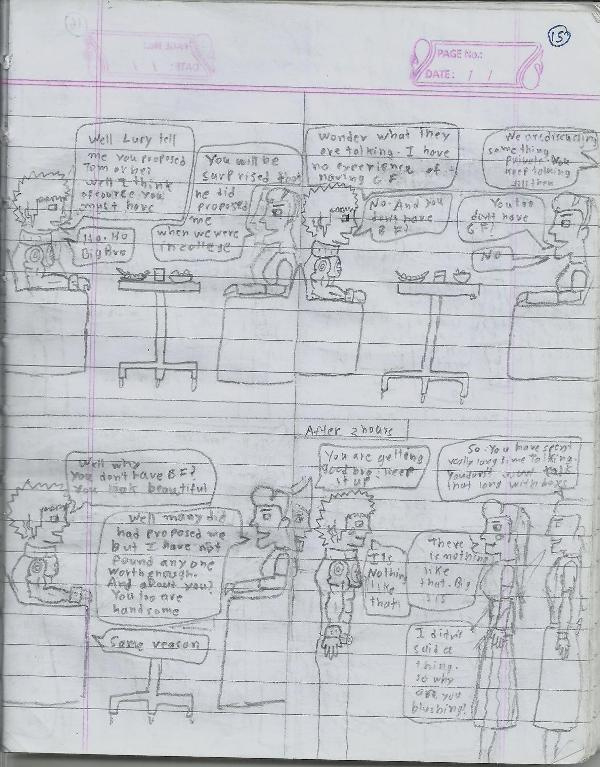 15
PAGE No.:
DATE: / /
Well Lury tell
me you proposed
Tom or he?
Well I think
ofcourse you
must have
Ho. Ho
Big Bro
You will be
surprised that
he did
proposed
me
when we were
in college
Wonder what they
are talking. I have
no experience of
having G F
We are discussing
something
private. You
keep talking
till then
No. And you
don't have
B F?
You too
don't have
G F?
No
Well why
you don't have B F?
You look beautiful
Well many did
had proposed me
but I have not
found any one
worth enough.
And about you?
You too are
handsome
Same reason
After 2 hours
You are getting
good bro. keep
it up
So. You have spent
really long time talking.
You don't
that long with boys
It is
Nothing
like
that!
There
is nothing
like
that. Big
sis
I didn't
said a
thing.
so why
are you
blushing!